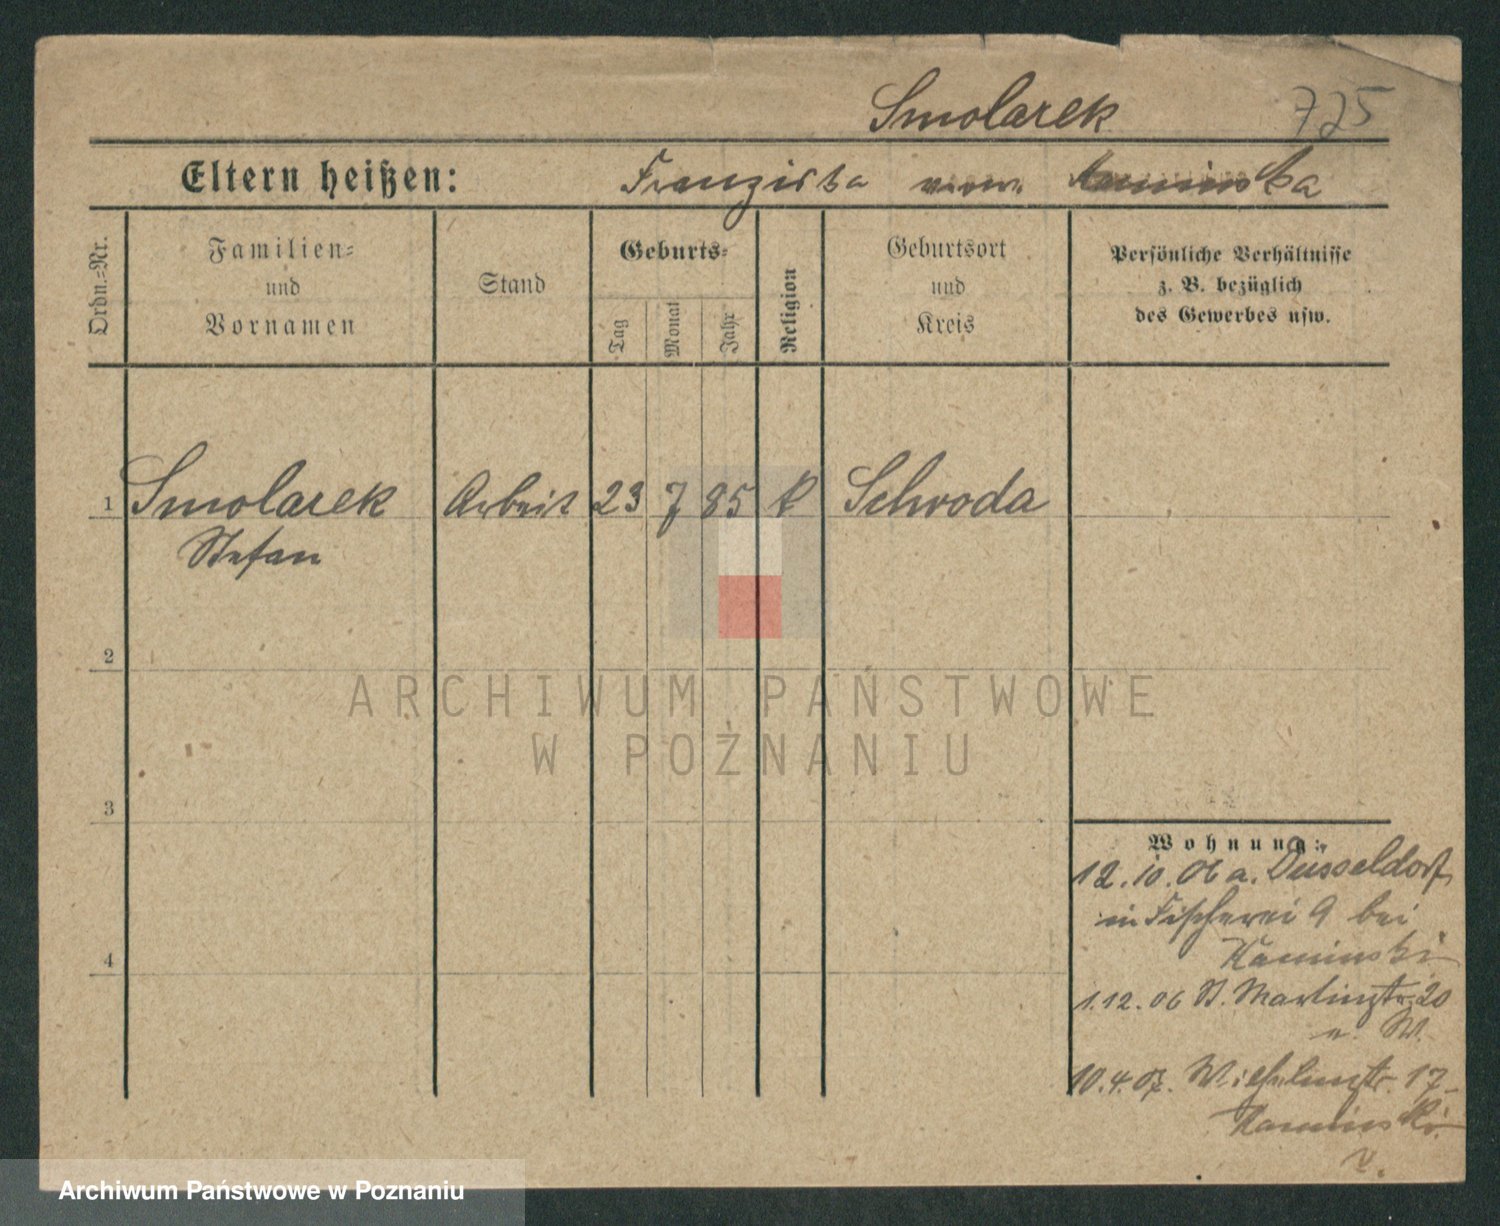 Smolarek 725
Eltern heißen: Franziska verw. Kaminska
Ordn.=Nr.
Familien=
und
Vornamen
Stand
Geburts=
Tag
Monat
Jahr
Religion
Geburtsort
und
Kreis
Persönliche Verhältnisse
z. B. bezüglich
des Gewerbes usw.
1 Smolarek Arbeit 23 7 85 k Schroda
Stefan
2
ARCHIWUM PAŃSTWOWE
W POZNANIU
3
Wohnung:
12.10.06 a. Düsseldorf
in Fischerei 9 bei
Kaminski
4
1.12.06 St. Martinstr. 20
W.
10.4.07. Wilhelmstr. 17
Kaminski
Archiwum Państwowe w Poznaniu